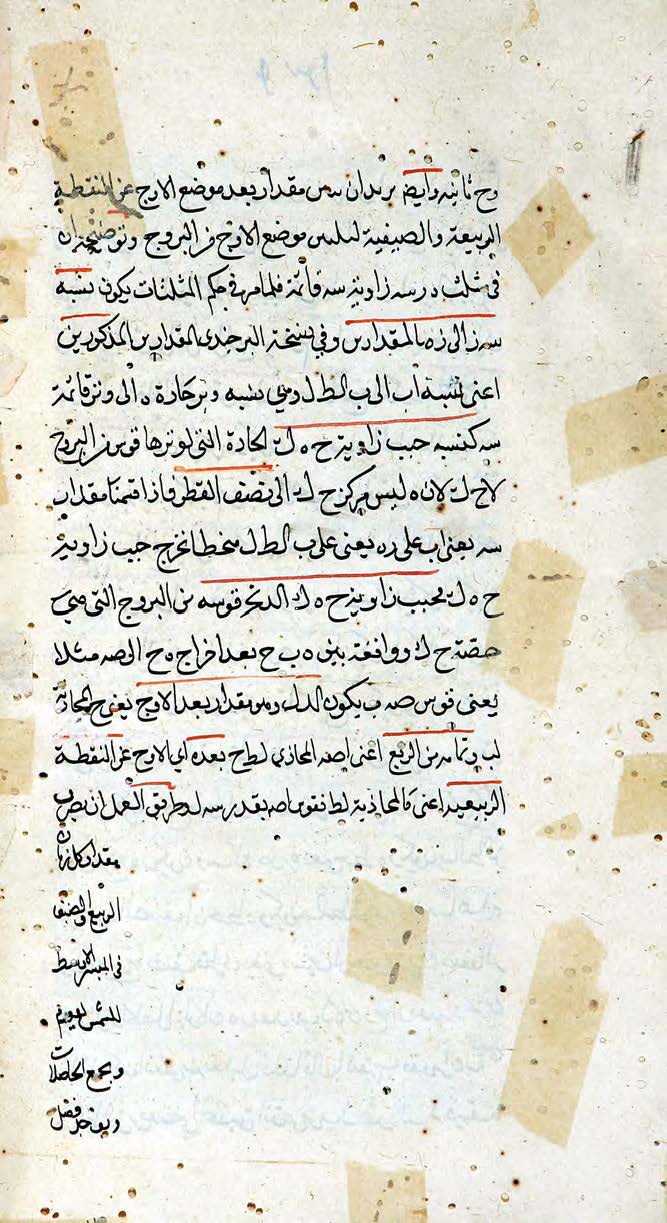 وح ثانيه وايضا يريد ان مقدار بعد موضع الاوج عن النقطة
الربيعية والصيفية ليتبين موضع الاوج من البروج وتوضيحه ان
فى مثلث زاوية سه قائمة فلما مر فى حكم المثلثات يكون نسبة
سه ز الى زه المقدارين وفي نسخة البرجندى المقدارين المذكورين
اعنى نسبة اب الى ب لط ل ومى نسبة وتر حادة ه الى وتر قائمة
سه كنسبة جيب زاوية ح ه ك الحادة التى لوترها قوس من البروج
لاح ك لان ه ليس مركز ح ك الى نصف القطر فاذا قسمنا مقدار ب
سه يعنى اب على ره يعنى على ب لط ل منحطا نخرج جيب زاوية
ح ه ك جيب زاوية ح ه ك قوسه من البروج التى هى
حصة ح ك ووافعة بين ه ب ح بعد اخراج ه ح الى صه مثلا
يعنى قوس صه ب يكون ومو مقدار بعد الاوج يعنى ح المحاذية
لب وتمامه من الربع اعنى اصه المحاذى لط ح بعده اى الاوج عن النقطة
الربيعية اعنى المحاذية لط نقوس اصه بقدر سه له وطريق العمل ان يضرب
مقدار كل زمان
الربيع والصيف
فى المسير الاوسط
للشمس ليوم
ويجمع الحاصلات
ويؤخذ فضل